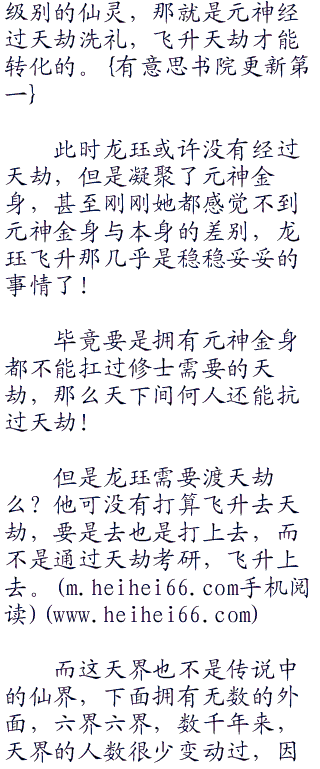 级别的仙灵，那就是元神经
过天劫洗礼，飞升天劫才能
转化的。{有意思书院更新第
一}
此时龙珏或许没有经过
天劫，但是凝聚了元神金
身，甚至刚刚她都感觉不到
元神金身与本身的差别，龙
珏飞升那几乎是稳稳妥妥的
事情了！
毕竟要是拥有元神金身
都不能扛过修士需要的天
劫，那么天下间何人还能抗
过天劫！
但是龙珏需要渡天劫
么？他可没有打算飞升去天
劫，要是去也是打上去，而
不是通过天劫考研，飞升上
去。(m.heihei66.com手机阅
读)(www.heihei66.com)
而这天界也不是传说中
的仙界，下面拥有无数的外
面，六界六界，数千年来，
天界的人数很少变动过，因